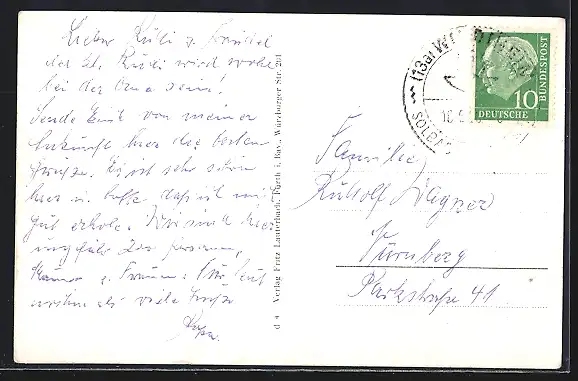 Lieber Rudi u. Traudel
der kl. Rudi wird wohl
bei der Oma sein!
Sende Euch von meiner
Ankunft hier die besten
Grüsse. Es ist sehr schön
hier u. hoffe, dass ich mich
gut erhole. Wir sind hier
ungefähr 200 Personen,
Männer u. Frauen. Für heut
viele Grüße
Papa.
d 4 Verlag Fritz Lauterbach, Fürth i. Bay., Würzburger Str. 20
(13a)
SOLBAD
10
DEUTSCHE
BUNDESPOST
Familie
Rudolf Wagner
Nürnberg
Parkstraße 41